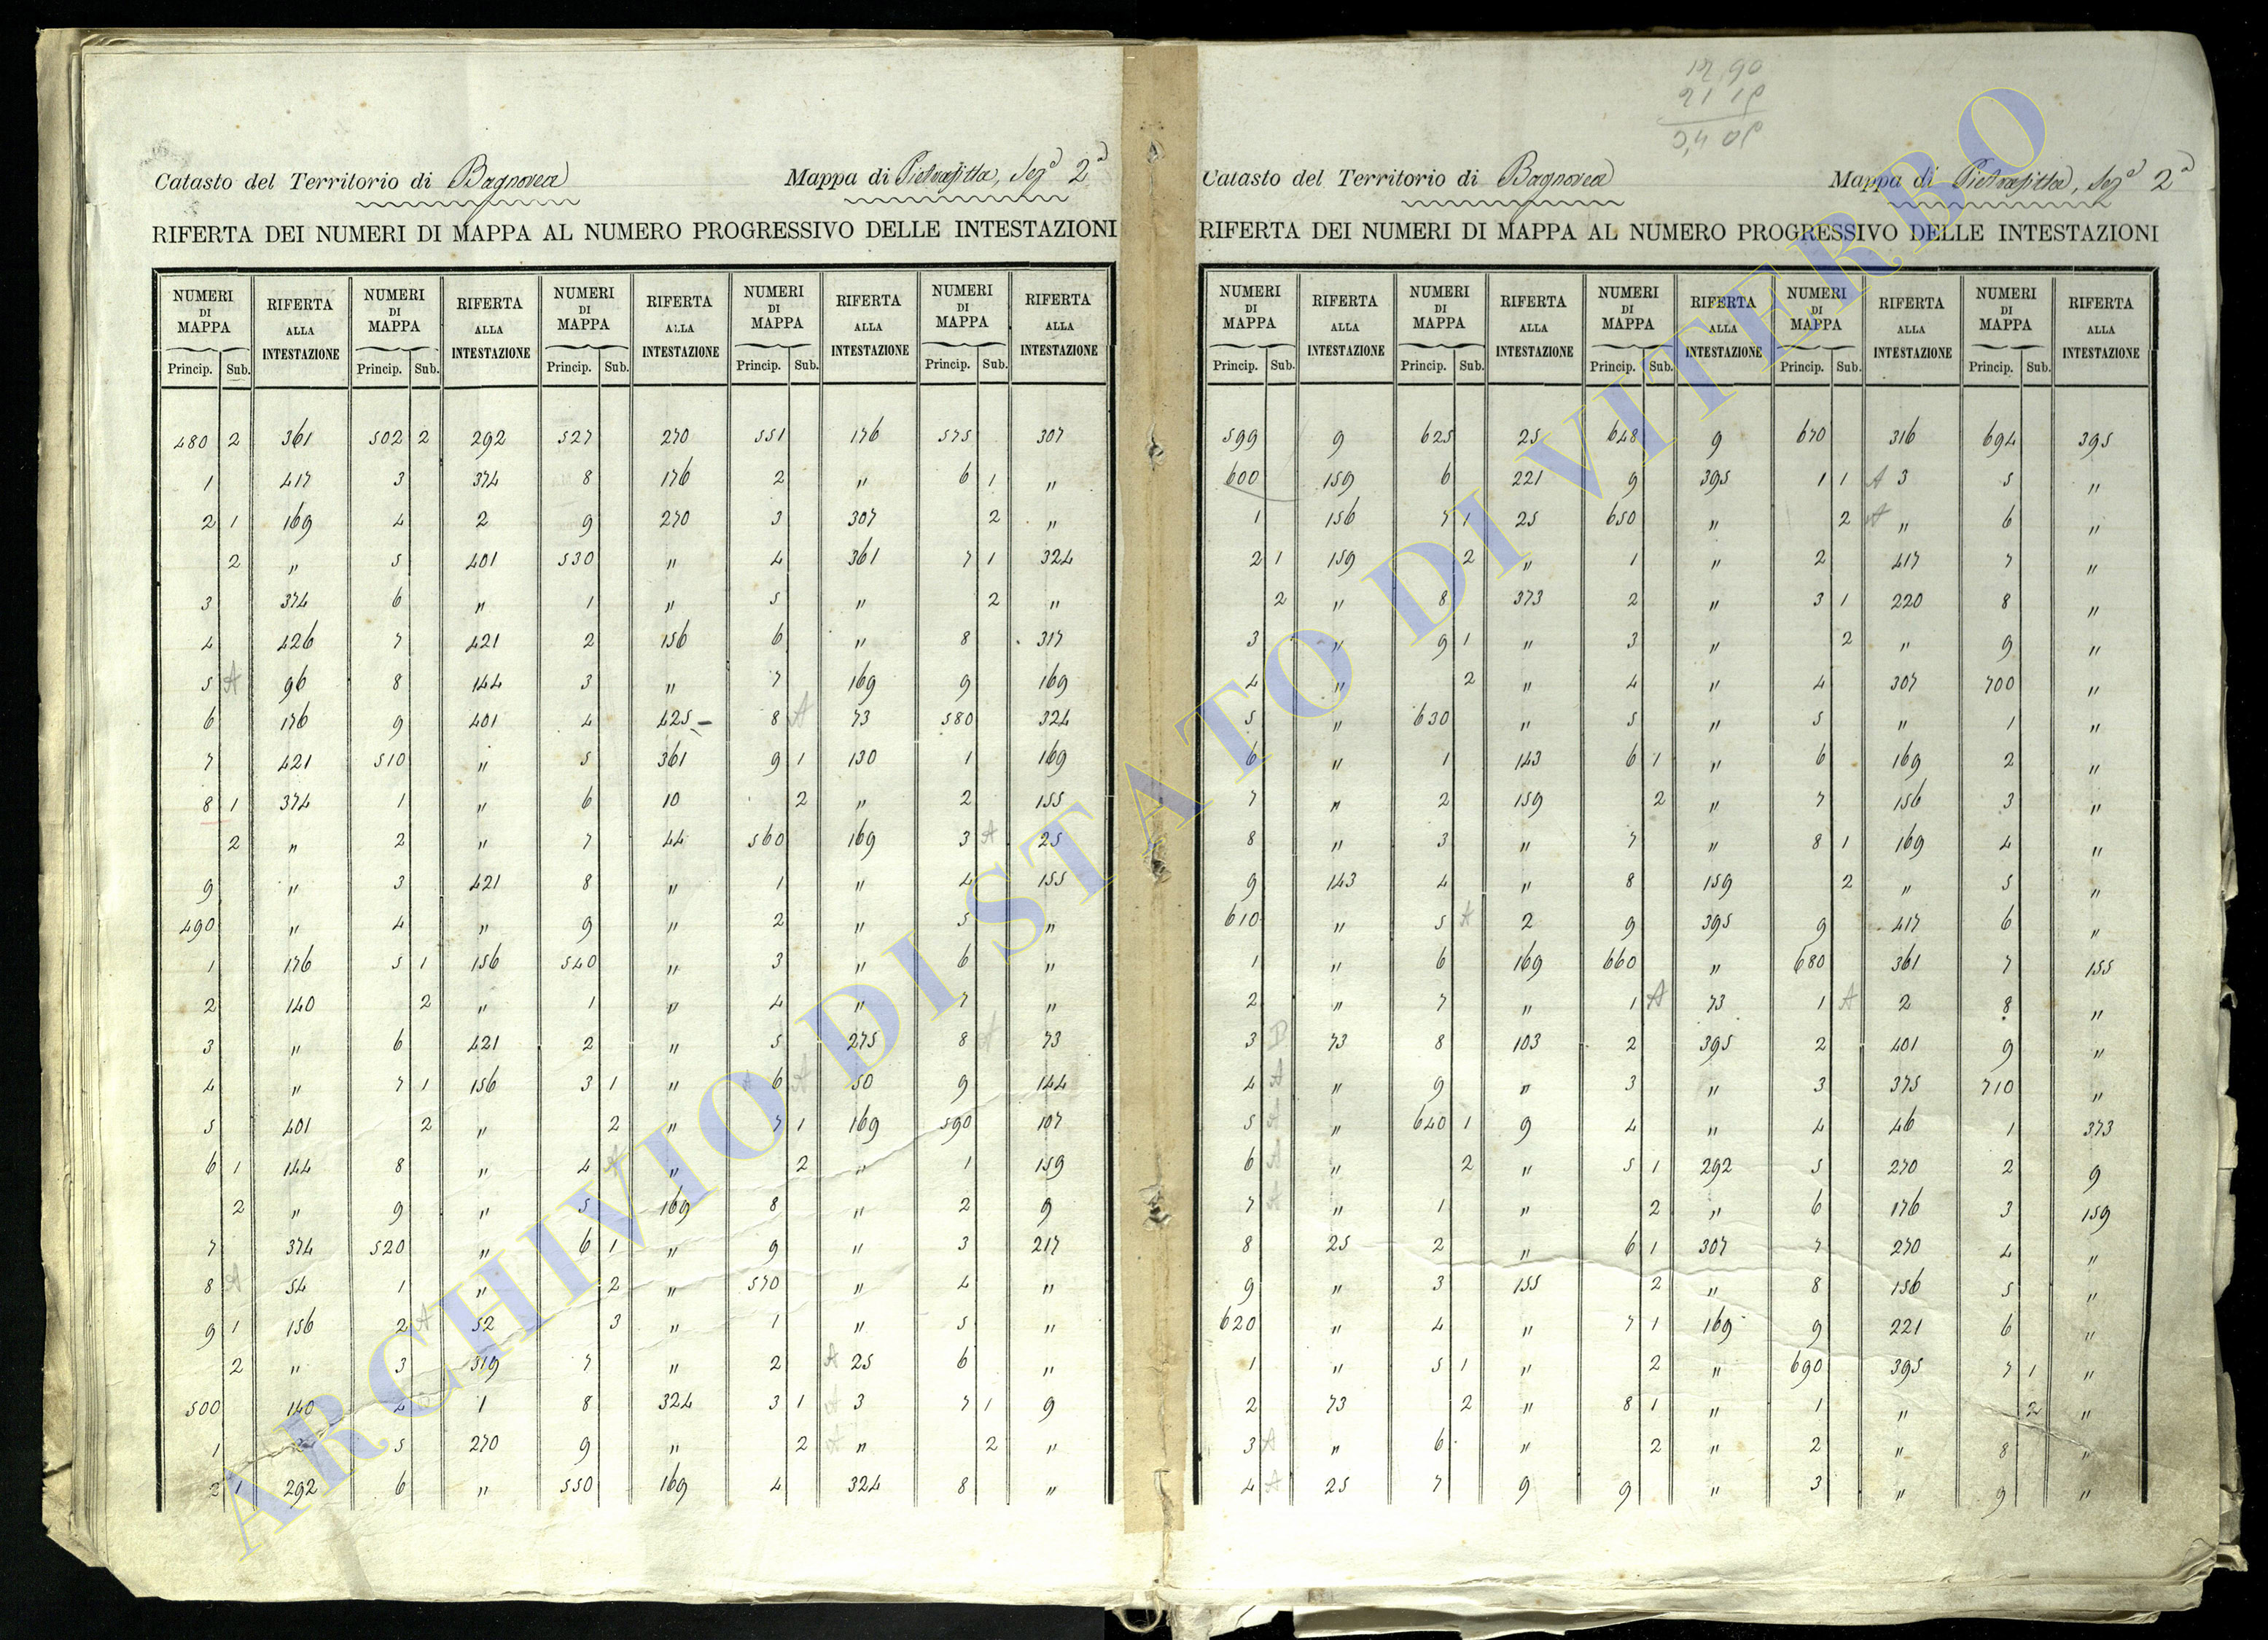 Catasto del Territorio di Bagnorea Mappa di Pietrafitta, Sez.e 2a
RIFERTA DEI NUMERI DI MAPPA AL NUMERO PROGRESSIVO DELLE INTESTAZIONI
NUMERI DI MAPPA RIFERTA ALLA INTESTAZIONE NUMERI DI MAPPA RIFERTA ALLA INTESTAZIONE NUMERI DI MAPPA RIFERTA ALLA INTESTAZIONE NUMERI DI MAPPA RIFERTA ALLA INTESTAZIONE NUMERI DI MAPPA RIFERTA ALLA INTESTAZIONE
Princip. Sub. Princip. Sub. Princip. Sub. Princip. Sub. Princip. Sub.
480 2 361 502 2 292 527 270 551 176 575 307
1 417 3 374 8 176 2 " 6 1 "
2 1 169 4 2 9 270 3 307 2 "
2 " 5 401 530 " 4 361 7 1 324
3 374 6 " 1 " 5 " 2 "
4 426 7 421 2 156 6 " 8 317
5 A 96 8 144 3 " 7 169 9 169
6 176 9 401 4 425 8 A 73 580 324
7 421 510 " 5 361 9 1 130 1 169
8 1 374 1 " 6 10 2 " 2 155
2 " 2 " 7 44 560 169 3 A 25
9 " 3 421 8 " 1 " 4 155
490 " 4 " 9 " 2 " 5 "
1 176 5 1 156 540 " 3 " 6 "
2 140 2 " 1 " 4 " 7 "
3 " 6 421 2 " 5 275 8 A 73
4 " 7 1 156 3 1 " 6 A 50 9 144
5 401 2 " 2 " 7 1 169 590 107
6 1 144 8 " 4 A " 2 " 1 159
2 " 9 " 5 169 8 " 2 9
7 374 520 " 6 1 " 9 " 3 217
8 A 54 1 " 2 " 570 " 4 "
9 1 156 2 A 52 3 " 1 " 5 "
2 " 3 319 7 " 2 A 25 6 "
500 140 4 1 8 324 3 1 A 3 7 1 9
1 2 5 270 9 " 2 A " 2 "
2 1 292 6 " 550 169 4 324 8 "
Catasto del Territorio di Bagnorea Mappa di Pietrafitta, Sez.e 2a
RIFERTA DEI NUMERI DI MAPPA AL NUMERO PROGRESSIVO DELLE INTESTAZIONI
NUMERI DI MAPPA RIFERTA ALLA INTESTAZIONE NUMERI DI MAPPA RIFERTA ALLA INTESTAZIONE NUMERI DI MAPPA RIFERTA ALLA INTESTAZIONE NUMERI DI MAPPA RIFERTA ALLA INTESTAZIONE NUMERI DI MAPPA RIFERTA ALLA INTESTAZIONE
Princip. Sub. Princip. Sub. Princip. Sub. Princip. Sub. Princip. Sub.
599 9 625 25 648 9 670 316 694 395
600 159 6 221 9 395 1 1 A 3 5 "
1 156 7 1 25 650 " 2 A " 6 "
2 1 159 2 " 1 " 2 417 7 "
2 " 8 373 2 " 3 1 220 8 "
3 " 9 1 " 3 " 2 " 9 "
4 " 2 " 4 " 4 307 700 "
5 " 630 " 5 " 5 " 1 "
6 " 1 143 6 1 " 6 169 2 "
7 " 2 159 2 " 7 156 3 "
8 " 3 " 7 " 8 1 169 4 "
9 143 4 " 8 159 2 " 5 "
610 " 5 A 2 9 395 9 417 6 "
1 " 6 169 660 " 680 361 7 155
2 " 7 " 1 A 73 1 A 2 8 "
3 73 8 103 2 395 2 401 9 "
4 A " 9 " 3 " 3 375 710 "
5 A " 640 1 9 4 " 4 46 1 373
6 A " 2 " 5 1 292 5 270 2 9
7 A " 1 " 2 " 6 176 3 159
8 25 2 " 6 1 307 7 270 4 "
9 " 3 155 2 " 8 156 5 "
620 " 4 " 7 1 169 9 221 6 "
1 " 5 1 " 2 " 690 395 7 1 "
2 73 2 " 8 1 " 1 " 2 "
3 A " 6 " 2 " 2 " 8 "
4 A 25 7 9 9 " 3 " 9 "
ARCHIVIO DI STATO DI VITERBO